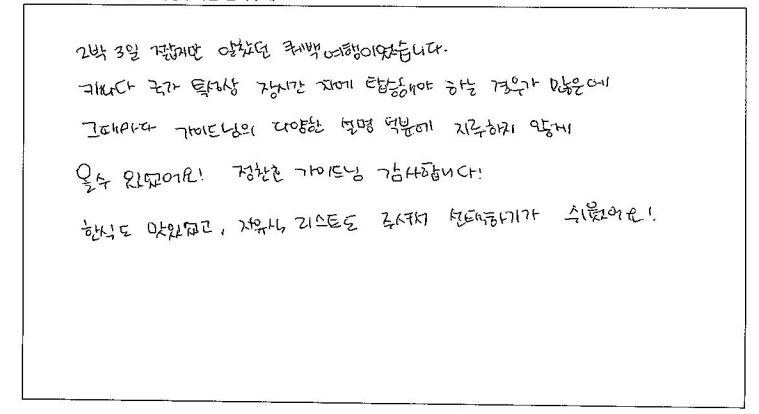 2박 3일 짧지만 알찼던 퀘백 여행이었습니다.
캐나다 국가 특성상 장시간 차에 탑승해야 하는 경우가 많은데
그때마다 가이드님의 다양한 설명 덕분에 지루하지 않게
올수 있었어요! 정찬호 가이드님 감사합니다!
한식도 맛있었고, 자유식 리스트도 주셔서 선택하기가 쉬웠어요!